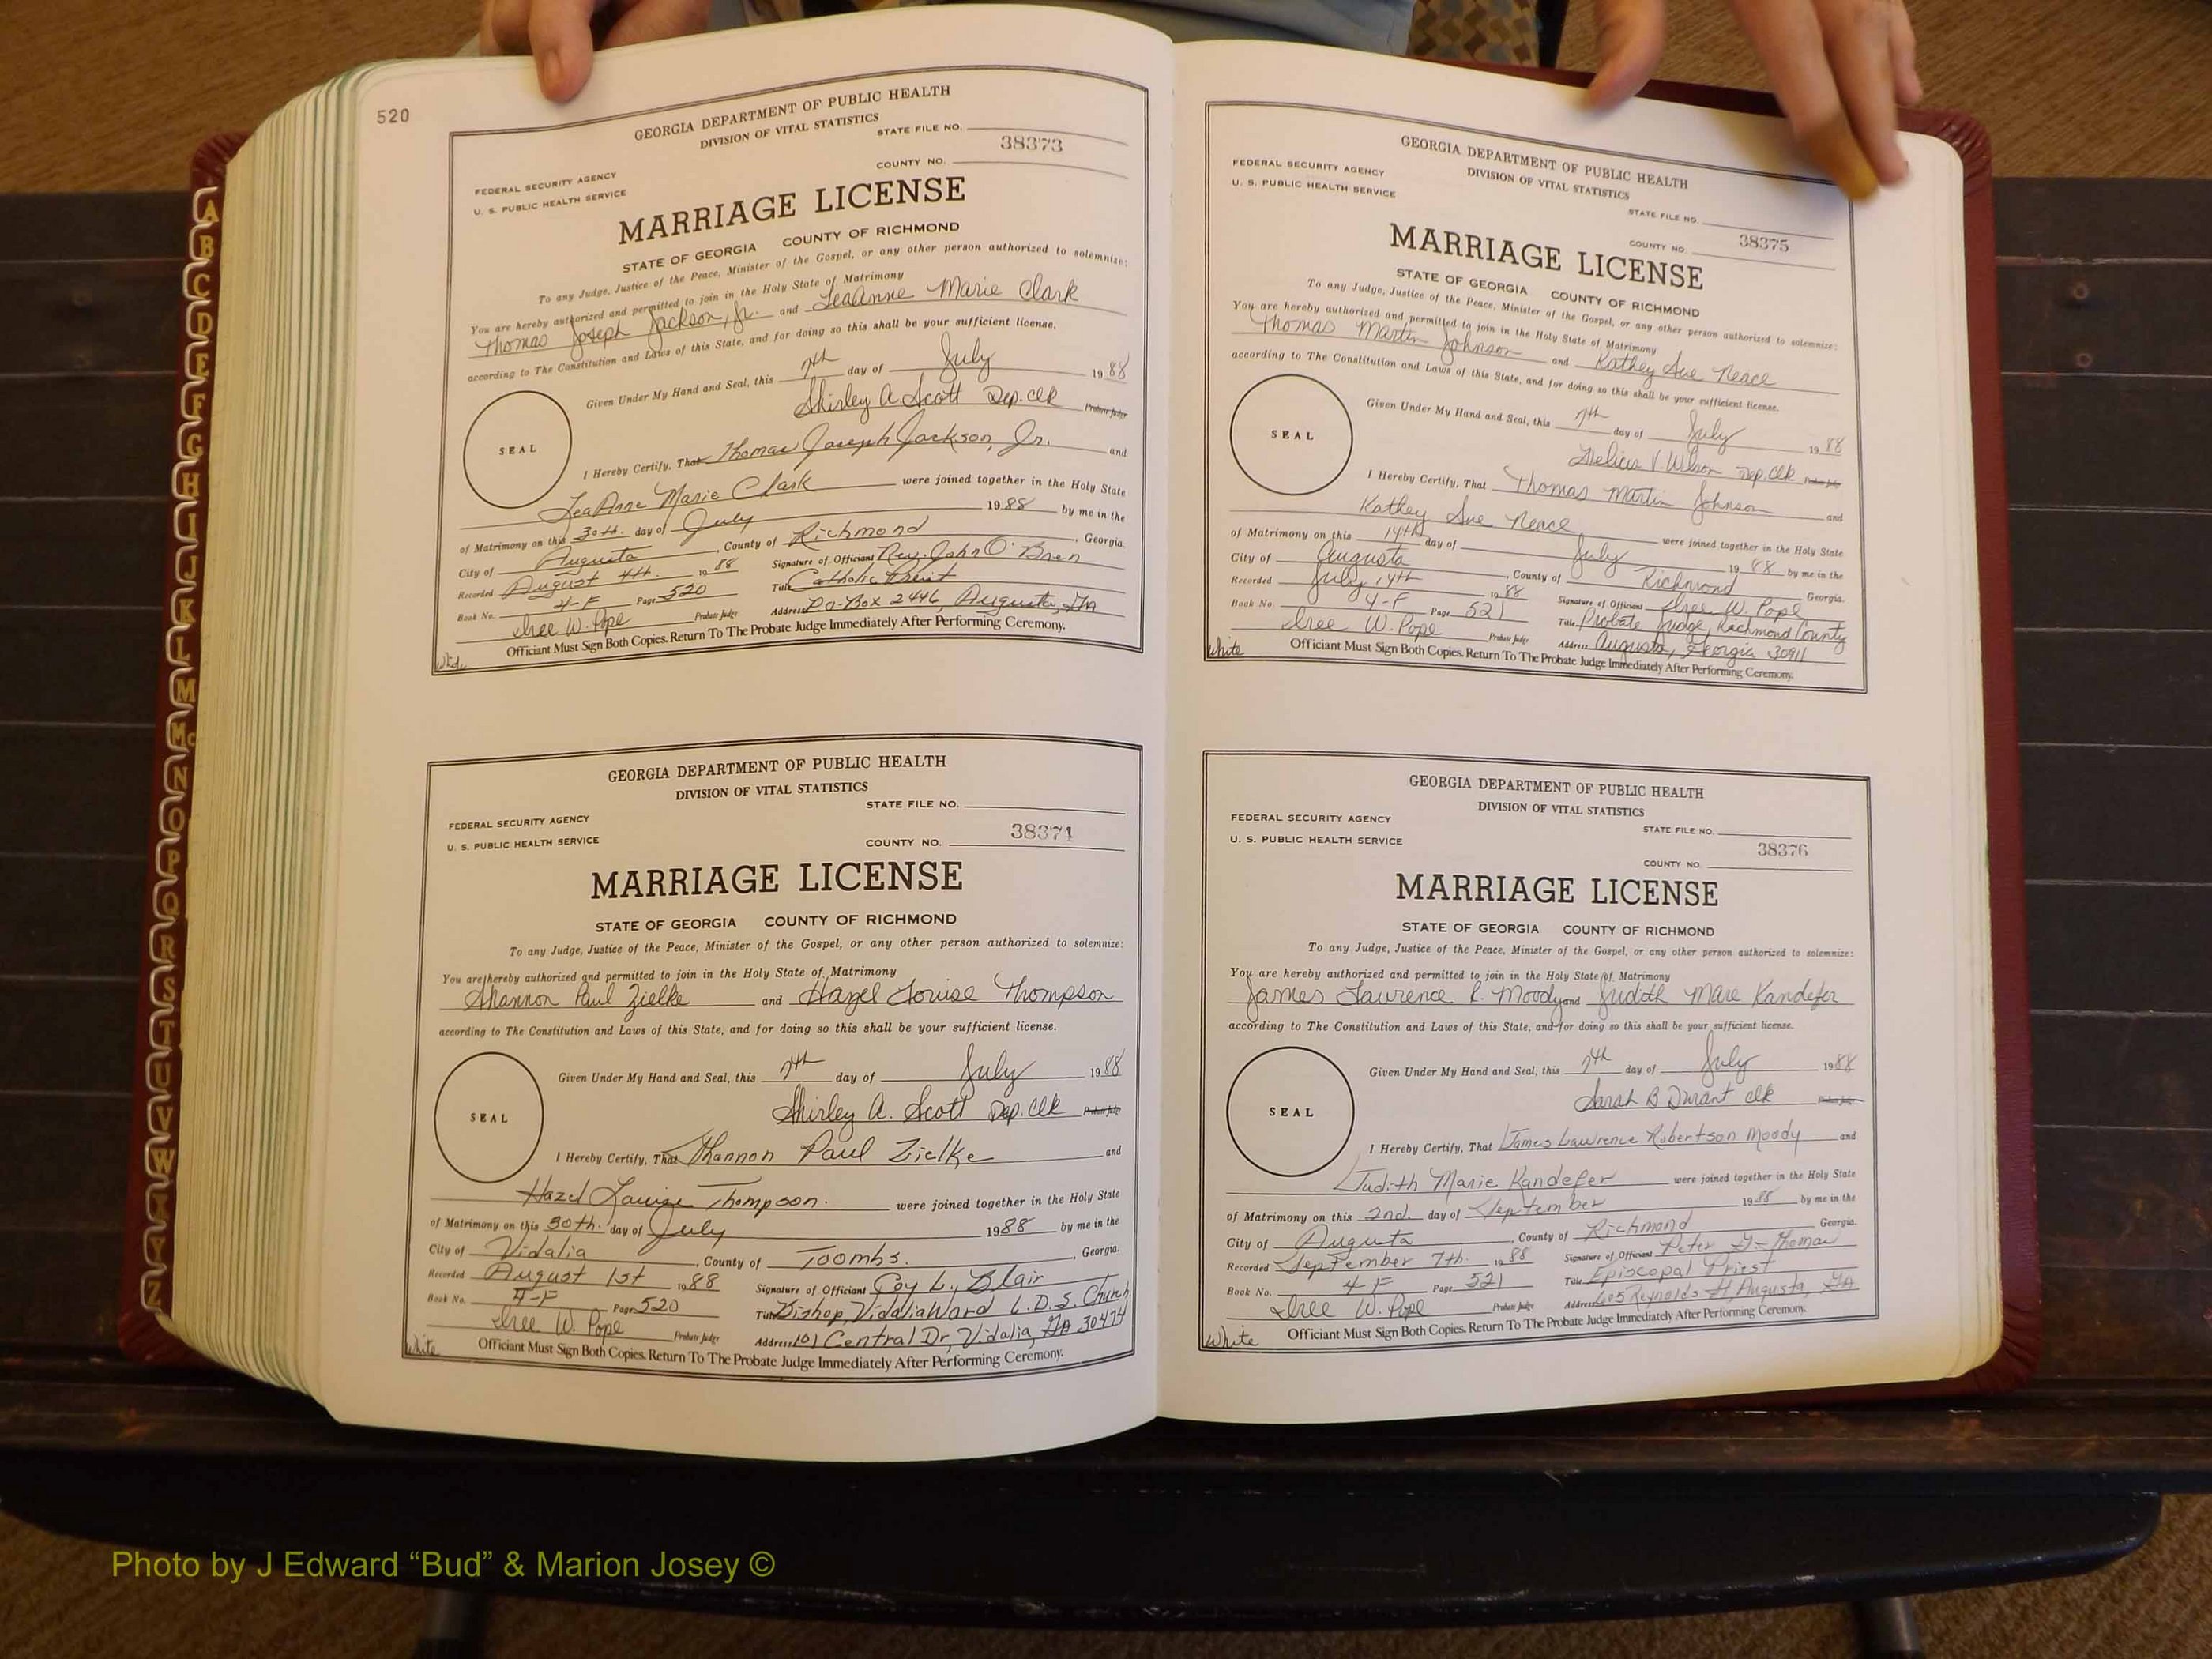 520
GEORGIA DEPARTMENT OF PUBLIC HEALTH
DIVISION OF VITAL STATISTICS
STATE FILE NO.
38373
FEDERAL SECURITY AGENCY
COUNTY NO.
U. S. PUBLIC HEALTH SERVICE
MARRIAGE LICENSE
STATE OF GEORGIA COUNTY OF RICHMOND
To any Judge, Justice of the Peace, Minister of the Gospel, or any other person authorized to solemnize:
You are hereby authorized and permitted to join in the Holy State of Matrimony
Thomas Joseph Jackson, Jr. and LeaAnne Marie Clark
according to The Constitution and Laws of this State, and for doing so this shall be your sufficient license.
Given Under My Hand and Seal, this 7th day of July 1988
Shirley A. Scott Dep. Clk Probate Judge
SEAL
I Hereby Certify, That Thomas Joseph Jackson, Jr. and
LeaAnne Marie Clark were joined together in the Holy State
of Matrimony on this 30th. day of July 1988 by me in the
City of Augusta, County of Richmond, Georgia.
Recorded August 4th. 1988 Signature of Officiant Rev. John O'Brien
Book No. 4-F Page 520 Title Catholic Priest
Iree W. Pope Probate Judge Address P.O. Box 2446, Augusta, GA
Officiant Must Sign Both Copies. Return To The Probate Judge Immediately After Performing Ceremony.
White
GEORGIA DEPARTMENT OF PUBLIC HEALTH
DIVISION OF VITAL STATISTICS
STATE FILE NO.
FEDERAL SECURITY AGENCY
38374
U. S. PUBLIC HEALTH SERVICE COUNTY NO.
MARRIAGE LICENSE
STATE OF GEORGIA COUNTY OF RICHMOND
To any Judge, Justice of the Peace, Minister of the Gospel, or any other person authorized to solemnize:
You are hereby authorized and permitted to join in the Holy State of Matrimony
Shannon Paul Zielke and Hazel Louise Thompson
according to The Constitution and Laws of this State, and for doing so this shall be your sufficient license.
Given Under My Hand and Seal, this 7th day of July 1988
Shirley A. Scott Dep. Clk Probate Judge
SEAL
I Hereby Certify, That Shannon Paul Zielke and
Hazel Louise Thompson. were joined together in the Holy State
of Matrimony on this 30th. day of July 1988 by me in the
City of Vidalia, County of Toombs., Georgia.
Recorded August 1st 1988 Signature of Officiant Coy L. Blair
Book No. 4-F Page 520 Title Bishop, Vidalia Ward L.D.S. Church
Iree W. Pope Probate Judge Address 101 Central Dr, Vidalia, GA 30474
Officiant Must Sign Both Copies. Return To The Probate Judge Immediately After Performing Ceremony.
White
GEORGIA DEPARTMENT OF PUBLIC HEALTH
DIVISION OF VITAL STATISTICS
FEDERAL SECURITY AGENCY
U. S. PUBLIC HEALTH SERVICE
STATE FILE NO.
COUNTY NO. 38375
MARRIAGE LICENSE
STATE OF GEORGIA COUNTY OF RICHMOND
To any Judge, Justice of the Peace, Minister of the Gospel, or any other person authorized to solemnize:
You are hereby authorized and permitted to join in the Holy State of Matrimony
Thomas Martin Johnson and Kathey Sue Neace
according to The Constitution and Laws of this State, and for doing so this shall be your sufficient license.
Given Under My Hand and Seal, this 7th day of July 1988
V Wilson Dep. Clk Probate Judge
SEAL
I Hereby Certify, That Thomas Martin Johnson and
Kathey Sue Neace were joined together in the Holy State
of Matrimony on this 14th day of July 1988 by me in the
City of Augusta, County of Richmond Georgia.
Recorded July 14th 1988 Signature of Officiant Iree W. Pope
Book No. 4-F Page 521 Title Probate Judge, Richmond County
Iree W. Pope Probate Judge Address Augusta, Georgia 30911
Officiant Must Sign Both Copies. Return To The Probate Judge Immediately After Performing Ceremony.
White
GEORGIA DEPARTMENT OF PUBLIC HEALTH
DIVISION OF VITAL STATISTICS
FEDERAL SECURITY AGENCY
STATE FILE NO.
U. S. PUBLIC HEALTH SERVICE
38376
COUNTY NO.
MARRIAGE LICENSE
STATE OF GEORGIA COUNTY OF RICHMOND
To any Judge, Justice of the Peace, Minister of the Gospel, or any other person authorized to solemnize:
You are hereby authorized and permitted to join in the Holy State of Matrimony
James Lawrence R. Moody and Judith Marie Kandefer
according to The Constitution and Laws of this State, and for doing so this shall be your sufficient license.
Given Under My Hand and Seal, this 7th day of July 1988
Sarah B Durant Clk Probate Judge
SEAL
I Hereby Certify, That James Lawrence Robertson Moody and
Judith Marie Kandefer were joined together in the Holy State
of Matrimony on this 2nd. day of September 1988 by me in the
City of Augusta, County of Richmond Georgia.
Recorded September 7th. 1988 Signature of Officiant Peter G. Thomas
Book No. 4-F Page 521 Title Episcopal Priest
Iree W. Pope Probate Judge Address 605 Reynolds St, Augusta, GA.
Officiant Must Sign Both Copies. Return To The Probate Judge Immediately After Performing Ceremony.
White
A
B
C
D
E
F
G
H
I
J
K
L
M
Mc
N
O
P
Q
R
S
T
U
V
W
X
Y
Z
Photo by J Edward “Bud” & Marion Josey ©